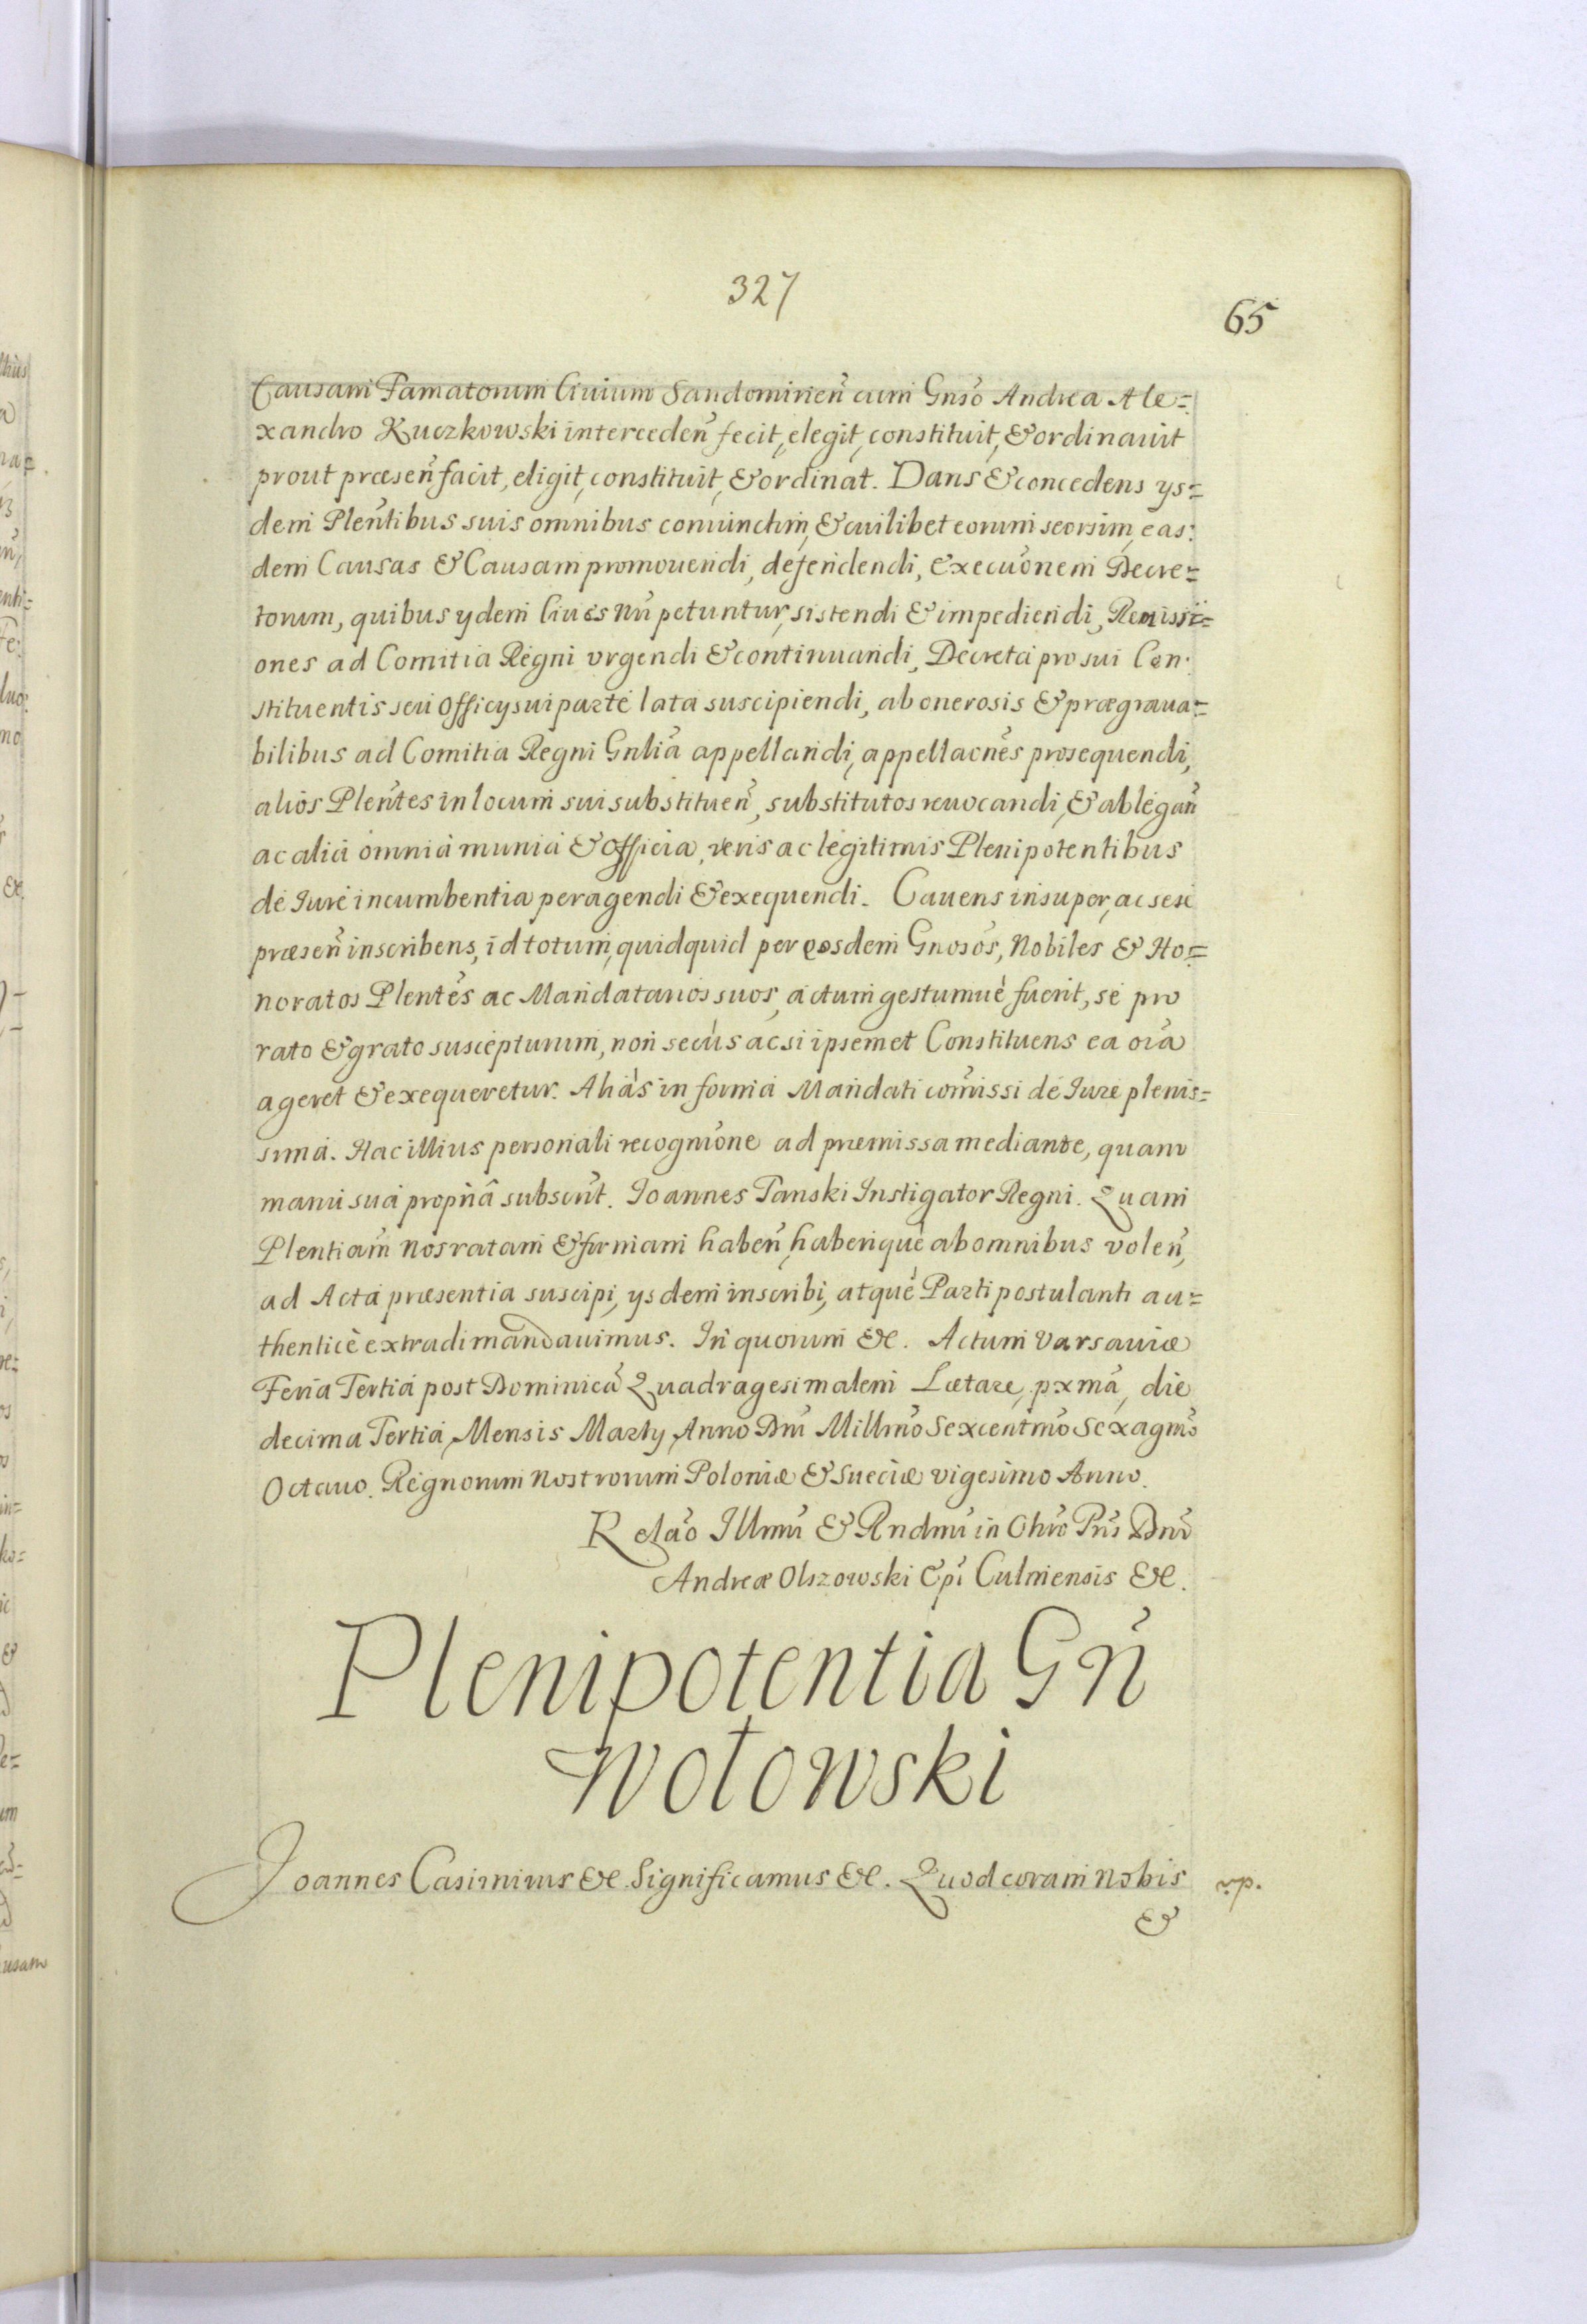 327
65
Causam Famatorum Ciuium Sandomirien̄ cum Gnso Andrea Ale=
xandro Kuczkowski interceden̄ fecit, elegit, constituit, & ordinauit
prout præsen̄ facit, eligit, constituit, & ordinat. Dans & concedens ys=
dem Plen̄tibus suis omnibus coniunctim, & cuilibet eorum seorsim, eas:
dem Causas & Causam promouendi, defendendi, Execuōnem Decre=
torum, quibus ydem Ciues nn̄ petuntur, sistendi & impediendi, Remissi=
ones ad Comitia Regni vrgendi & continuandi, Decreta pro sui Con:
stituentis seu Officy sui parte lata suscipiendi, ab onerosis & prægraua=
bilibus ad Comitia Regni Gnlia appellandi, appellaōnes prosequendi,
alios Plen̄tes in locum sui substituen̄, substitutos reuocandi, & ablegan̄
ac alia omnia munia & Officia, veris ac legitimis Plenipotentibus
de Iure incumbentia peragendi & exequendi. Cauens insuper, ac sese
præsen̄ inscribens, id totum, quidquid per eosdem Gnosos, Nobiles & Ho=
noratos Plentes ac Mandatarios suos, actum gestumuè fuerit, se pro
rato & grato suscepturum, non secùs ac si ipsemet Constituens ea oīa
ageret & exequeretur. Aliàs in forma Mandati com̄issi de Iure plenis=
sima. Hac illius personali recogniōne ad præmissa mediante, quam
manu sua propriâ subscrit. Ioannes Tanski Instigator Regni. Quam
Plentiam nos ratam & firmam haben̄, haberiquè ab omnibus volen̄,
ad Acta præsentia suscipi, ysdem inscribi, atquè Parti postulanti au=
thenticè extradi mandauimus. In quorum &c. Actum Varsauiæ
Feria Tertia post Dominicā Quadragesimalem Lætare, pxma, die
decima Tertia, Mensis Marty, Anno Dni Millmo Sexcentmo Sexagmo
Octauo. Regnorum nostrorum Poloniæ & Sueciæ vigesimo Anno.
Relāo Illmi & Rndmi in Chro Pris Dni
Andreæ Olszowski Epi Culmensis &c.
Plenipotentia Gn̄
Wotowski
Joannes Casimirus &c. Significamus &c. Quod coram nobis
&